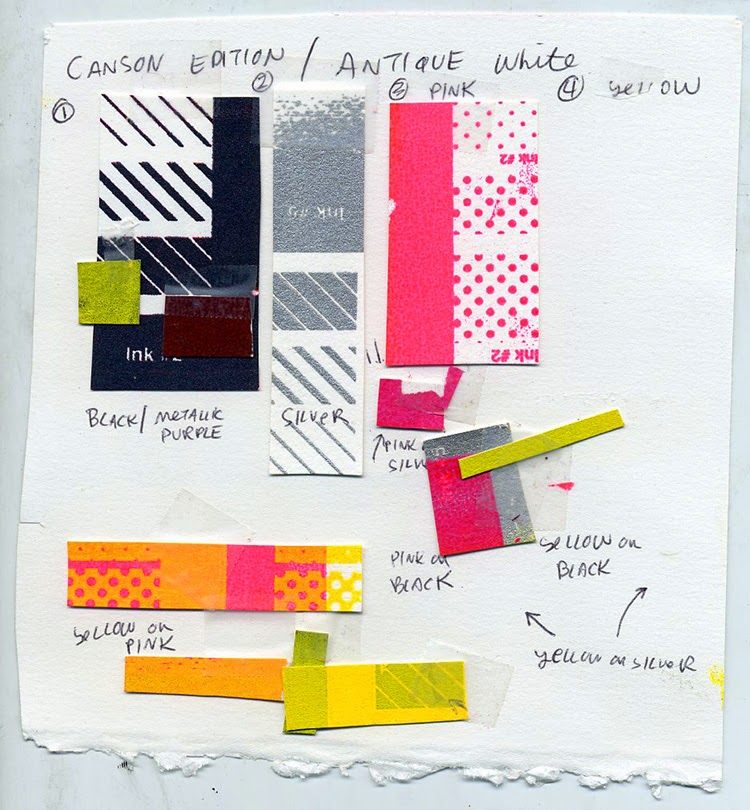 CANSON EDITION / ANTIQUE White
① ② ③ PINK ④ yellow
Ink #2
Ink #2
Ink #2
BLACK/METALLIC
PURPLE
SILVER
PINK
SILV
PINK on
BLACK
yellow on
BLACK
yellow on silver
yellow on
PINK